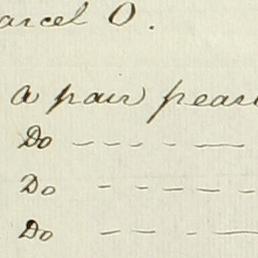 arcel O.
a pair pearl
Do - - - - -
Do - - - - -
Do - - - -